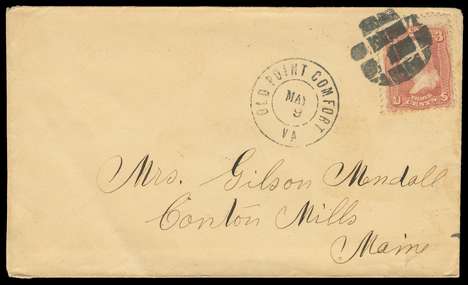 OLD POINT COMFORT
MAY
9
VA
3
U THREE S
CENTS
Mrs. Gilson Mendall
Conton Mills
Maine